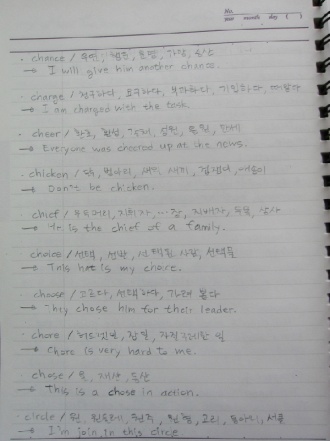 · chance / 우연, 행운, 운명, 가망,
→ I will give him another chance.
· charge / 청구하다, 요구하다, 부과하다, 기입하다,
→ I am charged with the task.
· cheer / 환호, 환성, 갈채, 격려, 응원, 만세
→ Everyone was cheered up at the news.
· chicken / 닭, 병아리, 새의 새끼, 겁쟁이, 애송이
→ Don't be chicken.
· chief / 우두머리, 지휘자, …장, 지배자, 두목, 상사
→ He is the chief of a family.
· choice / 선택, 선발, 선택된 사람, 선택물
→ This hat is my choice.
· choose / 고르다, 선택하다, 가려 뽑다
→ They chose him for their leader.
· chore / 허드렛일, 잡일, 자질구레한 일
→ Chore is very hard to me.
· chose / 물, 재산, 동산
→ This is a chose in action.
· circle / 원, 원둘레, 원주, 원형, 고리, 동아리, 서클
→ I'm join in this circle